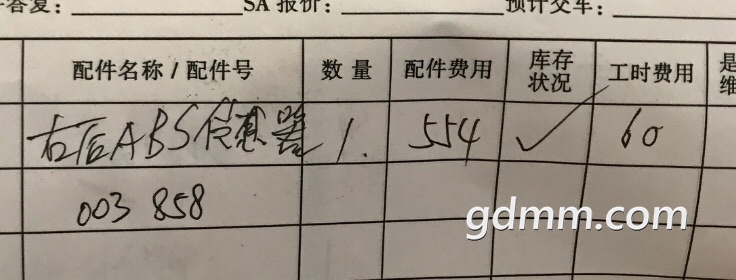 答复： SA 报价： 预计交车：
配件名称 / 配件号 数 量 配件费用 库存状况 工时费用 是 维
右后ABS传感器 1. 554 ✓ 60
003 858
gdmm.com